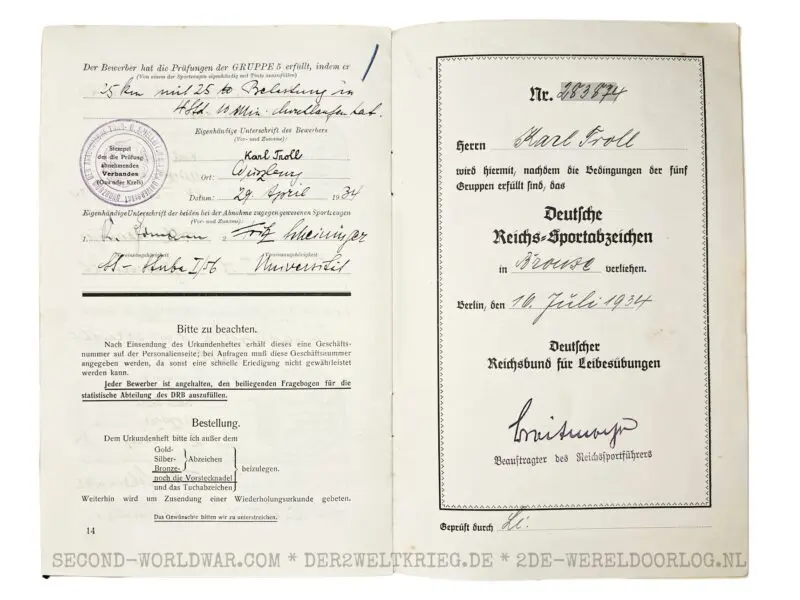 Der Bewerber hat die Prüfungen der GRUPPE 5 erfüllt, indem er
(Von einem der Sportzeugen eigenhändig mit Tinte auszufüllen)
25 km mit 25 Belastung in
4 Std. 10 Min. durchlaufen hat.
Eigenhändige Unterschrift des Bewerbers
(Vor- und Zuname):
Karl Troll
Ort: Würzburg
Datum: 29. April 1934
Stempel
des die Prüfung
abnehmenden
Verbandes
(Gau oder Kreis)
Eigenhändige Unterschrift der beiden bei der Abnahme zugegen gewesenen Sportzeugen
(Vor- und Zuname):
1. 2. Fritz
Vereinszugehörigkeit Vereinszugehörigkeit
I/56 Universität
Bitte zu beachten.
Nach Einsendung des Urkundenheftes erhält dieses eine Geschäfts-
nummer auf der Personalienseite; bei Anfragen muß diese Geschäftsnummer
angegeben werden, da sonst eine schnelle Erledigung nicht gewährleistet
werden kann.
Jeder Bewerber ist angehalten, den beiliegenden Fragebogen für die
statistische Abteilung des DRB auszufüllen.
Bestellung.
Dem Urkundenheft bitte ich außer dem
Gold-
Silber- Abzeichen
Bronze-
noch die Vorstecknadel
und das Tuchabzeichen
beizulegen.
Weiterhin wird um Zusendung einer Wiederholungsurkunde gebeten.
Das Gewünschte bitten wir zu unterstreichen.
14
Nr. 283874
Herrn Karl Troll
wird hiermit, nachdem die Bedingungen der fünf
Gruppen erfüllt sind, das
Deutsche
Reichs-Sportabzeichen
in Bronze verliehen.
Berlin, den 10. Juli 1934
Deutscher
Reichsbund für Leibesübungen
Beauftragter des Reichssportführers
Geprüft durch
SECOND-WORLDWAR.COM * DER2WELTKRIEG.DE * 2DE-WERELDOORLOG.NL